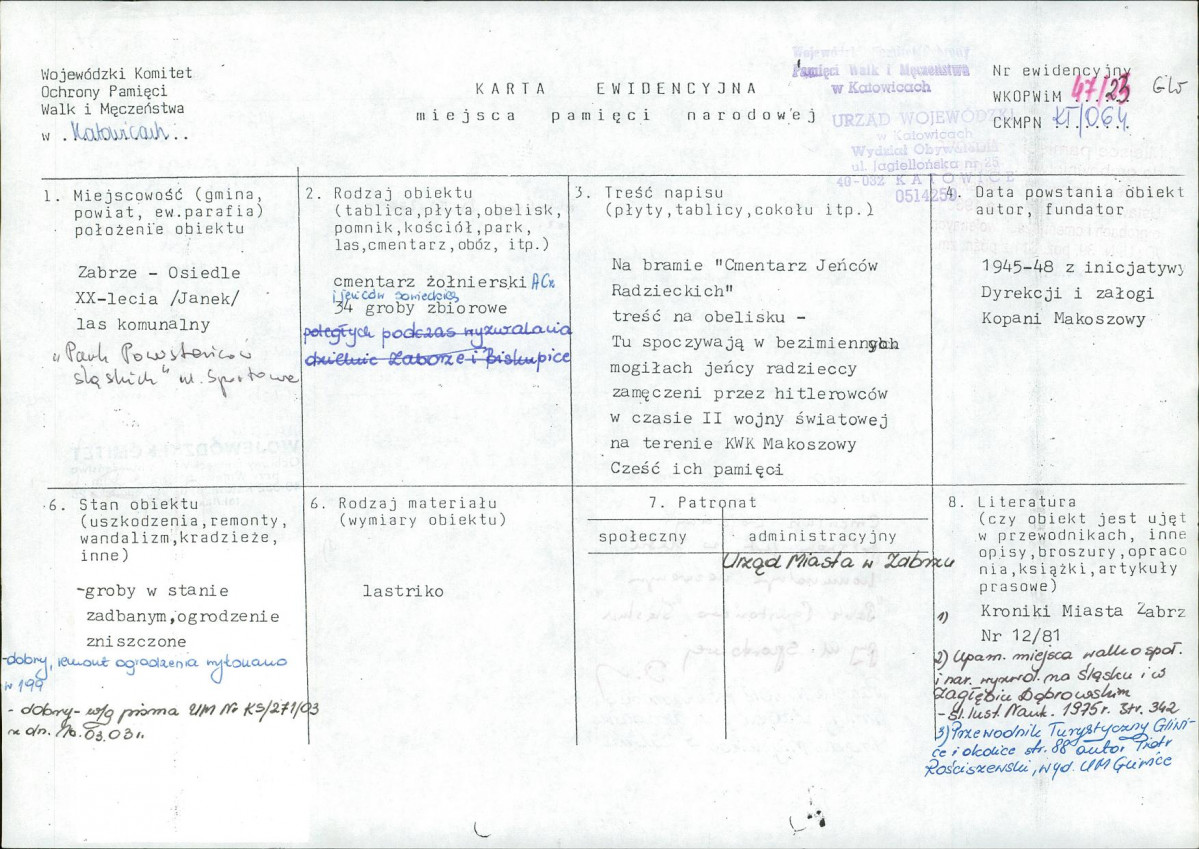 Wojewódzki Komitet
Ochrony Pamięci
Walk i Męczeństwa
w .Katowicach..
KARTA EWIDENCYJNA
miejsca pamięci narodowej
Pamięci Walk i Męczeństwa
w Katowicach
URZĄD WOJEWÓDZKI
w Katowicach
Wydział Obywatelski
ul. Jagiellońska nr 25
40-032 KATOWICE
0514259
Nr ewidencyjny
WKOPWiM 47/23
CKMPN KT/064
1. Miejscowość (gmina,
powiat, ew.parafia)
położenie obiektu
Zabrze - Osiedle
XX-lecia /Janek/
las komunalny
"Park Powstańców
śląskich" ul. Sportowa
2. Rodzaj obiektu
(tablica,płyta,obelisk,
pomnik,kościół,park,
las,cmentarz,obóz, itp.)
cmentarz żołnierski ACz
i jeńców sowieckich
34 groby zbiorowe
poległych podczas wyzwalania
dzielnic Zaborze i Biskupice
3. Treść napisu
(płyty,tablicy,cokołu itp.)
Na bramie "Cmentarz Jeńców
Radzieckich"
treść na obelisku -
Tu spoczywają w bezimiennych
mogiłach jeńcy radzieccy
zamęczeni przez hitlerowców
w czasie II wojny światowej
na terenie KWK Makoszowy
Cześć ich pamięci
4. Data powstania obiekt
autor, fundator
1945-48 z inicjatywy
Dyrekcji i załogi
Kopani Makoszowy
6. Stan obiektu
(uszkodzenia,remonty,
wandalizm,kradzieże,
inne)
-groby w stanie
zadbanym,ogrodzenie
zniszczone
-dobry, remont ogrodzenia wykonano
w 199
- dobry - w/g pisma UM Nr KS/271/03
z dn. 10.03.03r.
6. Rodzaj materiału
(wymiary obiektu)
lastriko
7. Patronat
społeczny
administracyjny
Urząd Miasta w Zabrzu
8. Literatura
(czy obiekt jest ujęt
w przewodnikach, inne
opisy,broszury,opraco
nia,książki,artykuły
prasowe)
1) Kroniki Miasta Zabrz
Nr 12/81
2) Upam. miejsca walk o społ.
i nar. wyzwol. na śląsku i w
Zagłębiu Dąbrowskim
- Śl. Inst. Nauk. 1975r. str. 342
3) Przewodnik Turystyczny Gliwi-
ce i okolice str. 88 autor Piotr
Rościszewski, wyd. UM Gliwice